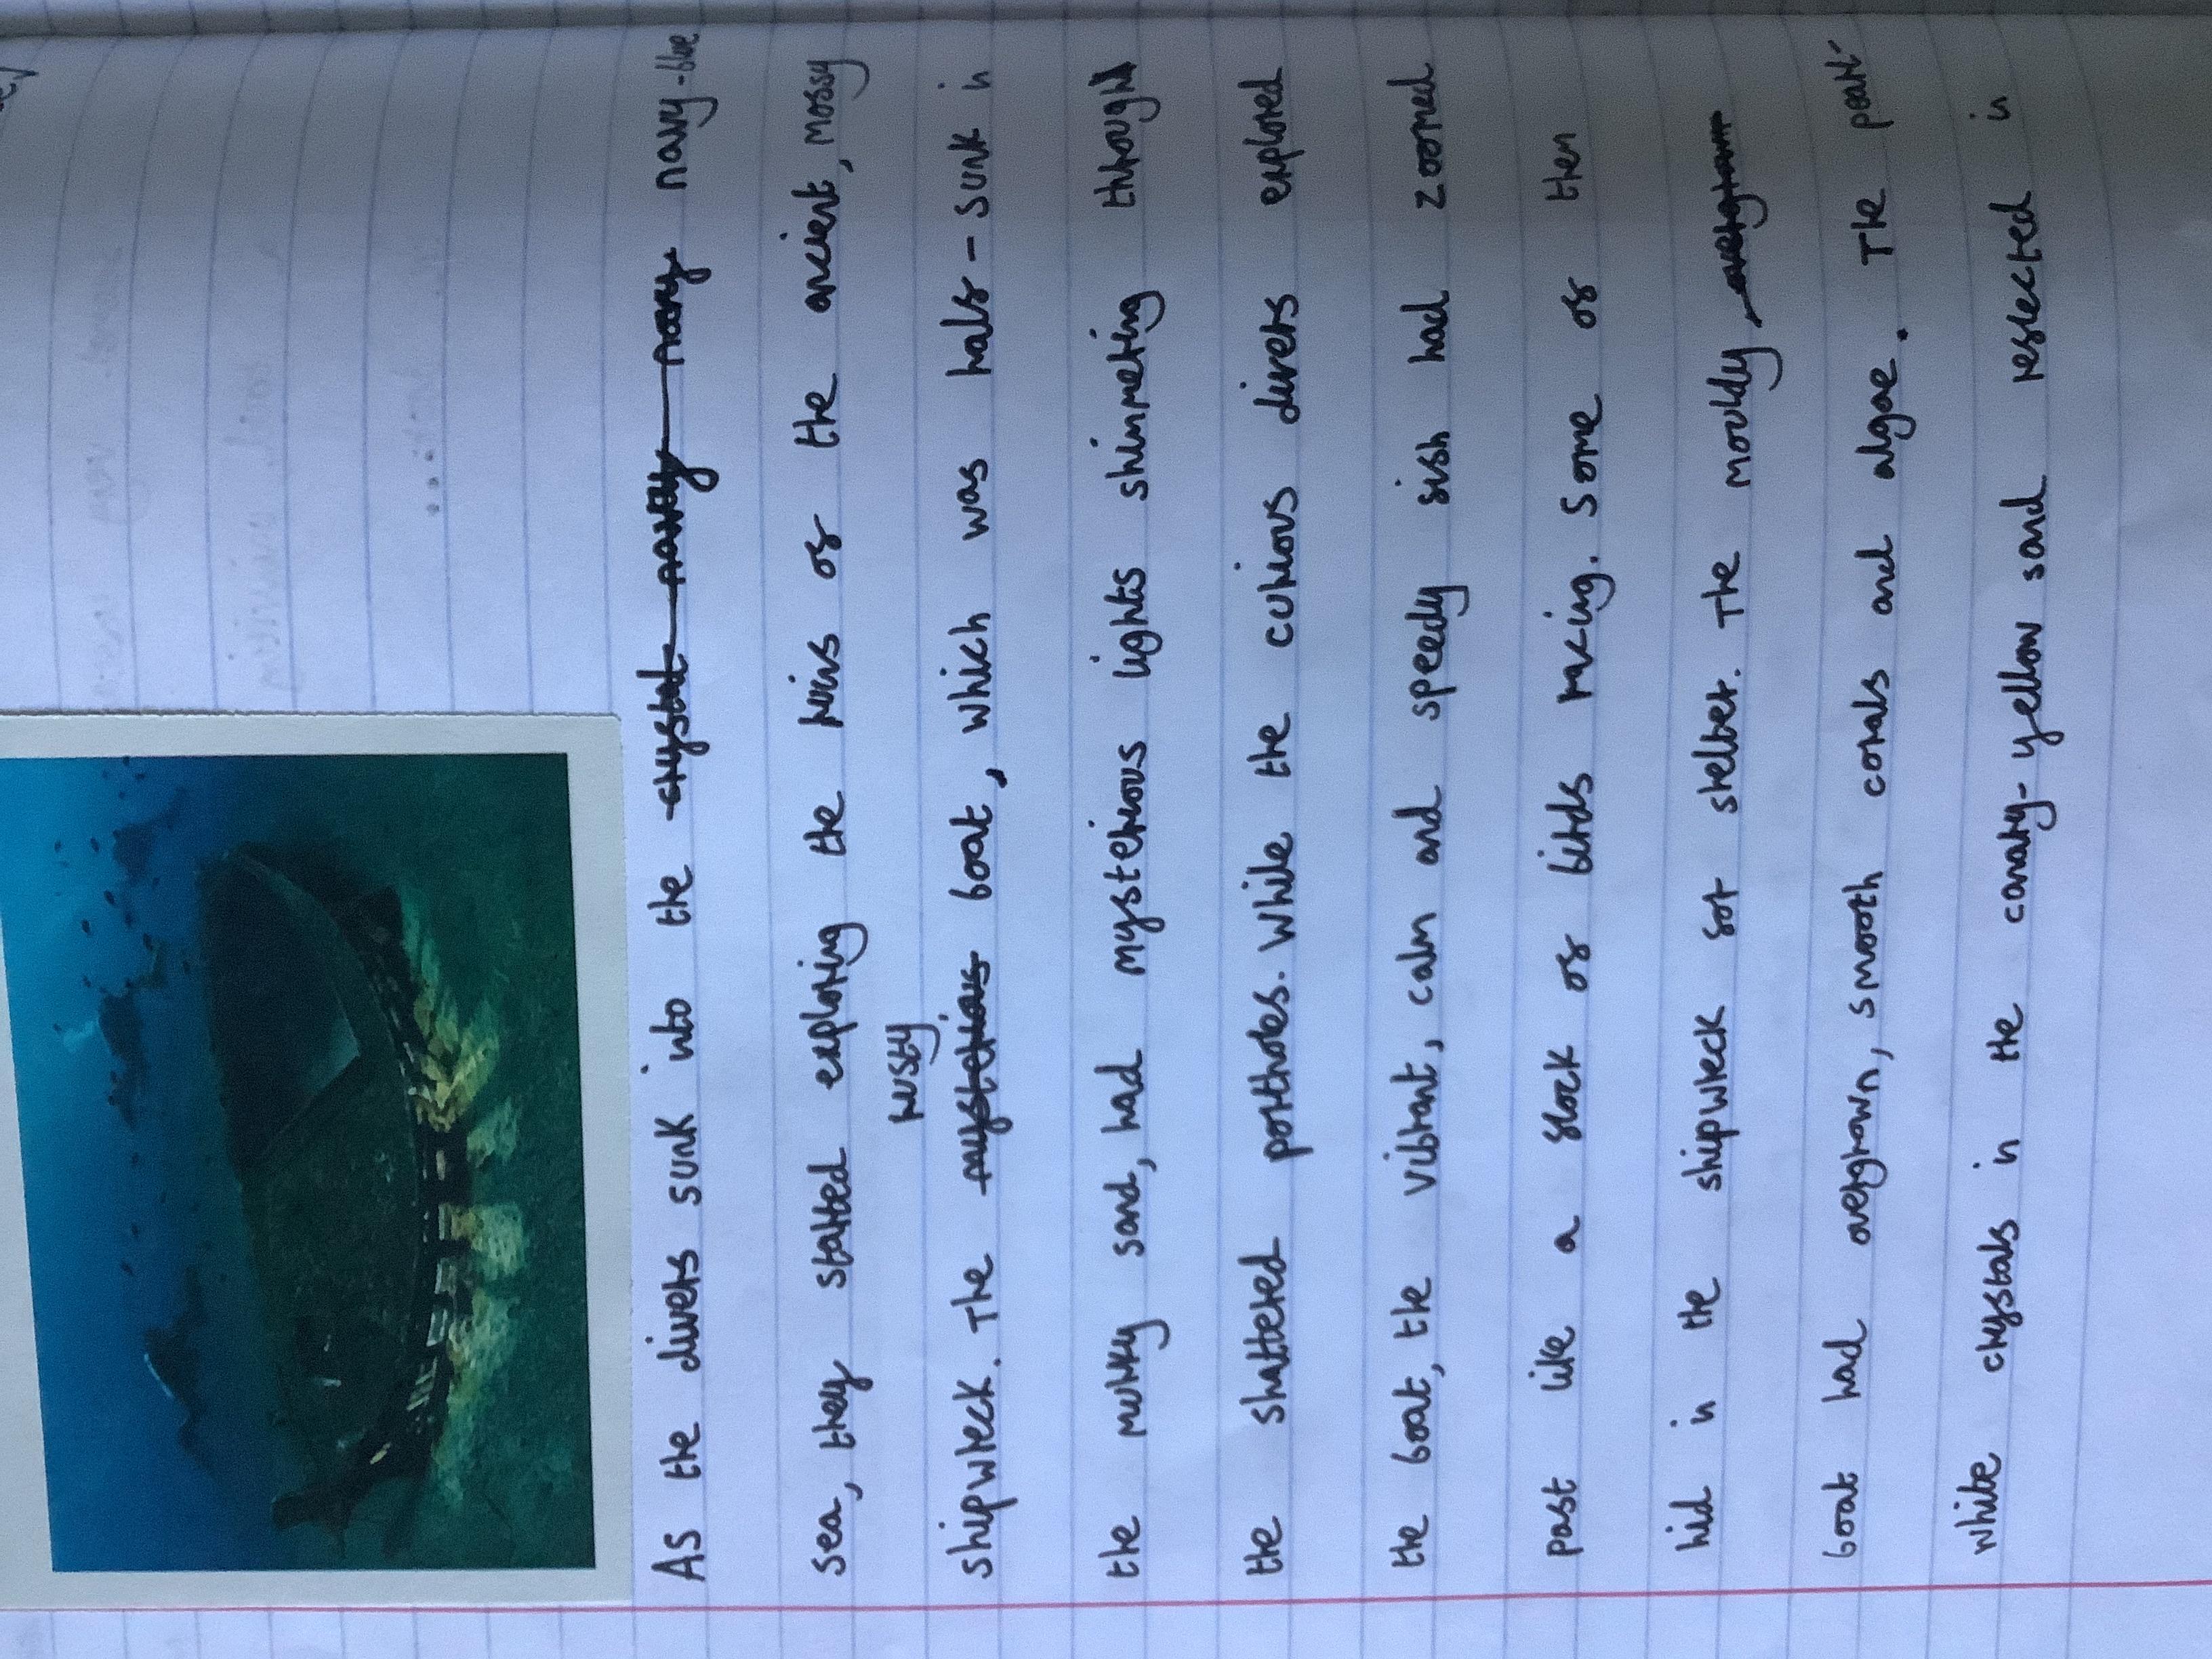 As the divers sunk into the crystal navy navy navy-blue
sea, they started exploring the ruins of the ancient, mossy
rusty
shipwreck. The mysterious boat, which was half-sunk in
the murky sand, had mysterious lights shimmering through
the shattered portholes. While the curious divers explored
the boat, the vibrant, calm and speedy fish had zoomed
past like a flock of birds racing. Some of them
hid in the shipwreck for shelter. The mouldy, overgrown
boat had overgrown, smooth corals and algae. The pearl-
white crystals in the canary-yellow sand reflected in